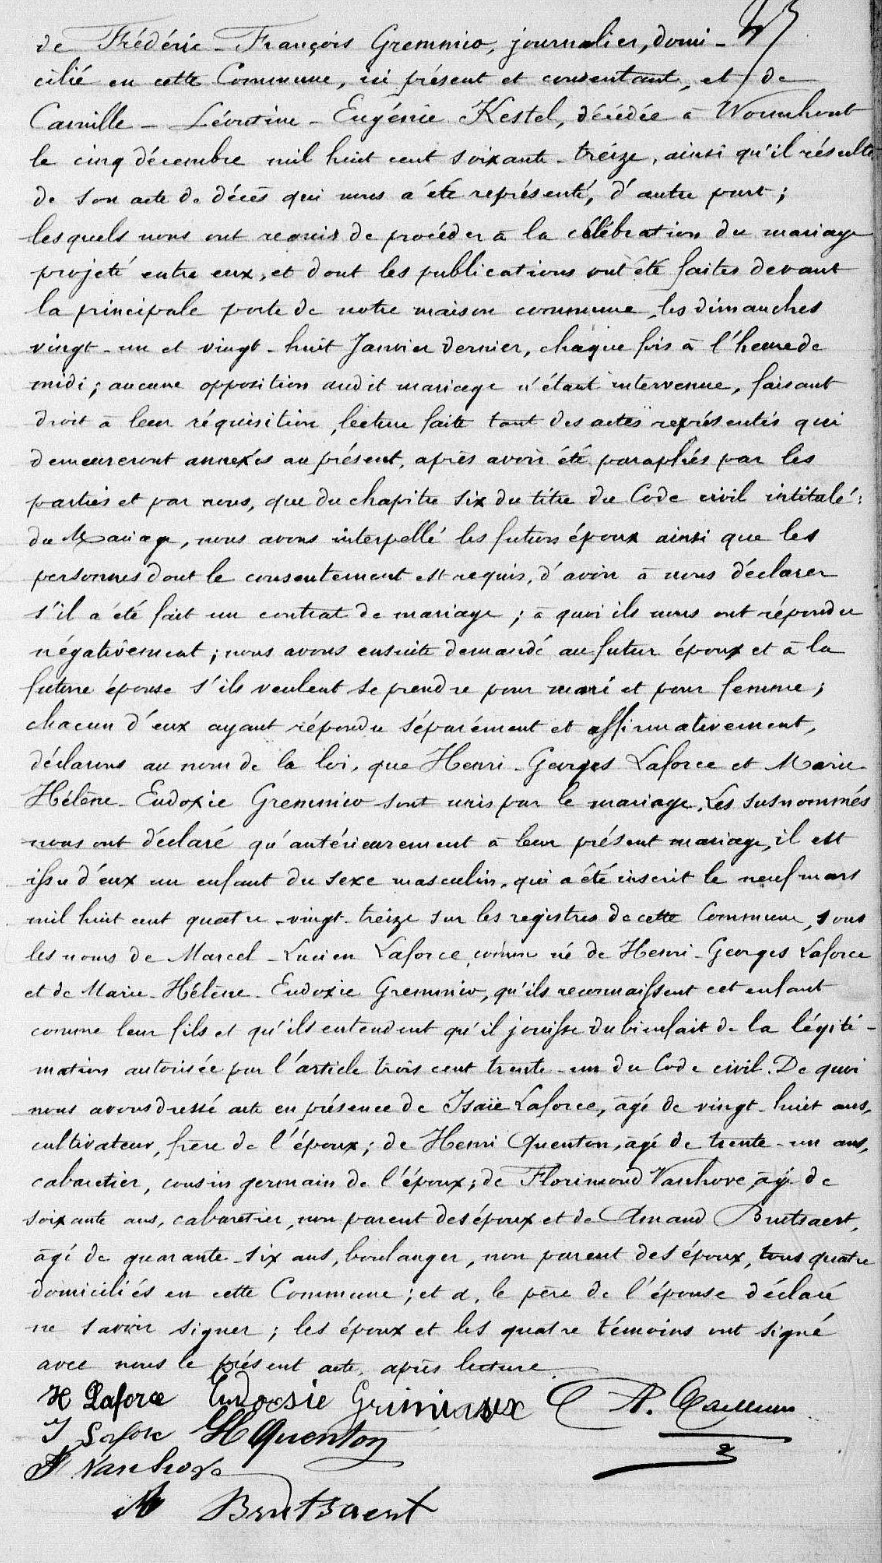 de Frédéric-François Gremmico, journalier, domi-
cilié en cette Commune, ici présent et consentant, et de
Camille-Léontine-Eugénie Kestel, décédée à Wormhout
le cinq décembre mil huit cent soixante-treize, ainsi qu'il résulte
de son acte de décès qui nous a été représenté, d'autre part;
lesquels nous ont requis de procéder à la célébration du mariage
projeté entre eux, et dont les publications ont été faites devant
la principale porte de notre maison commune, les dimanches
vingt-un et vingt-huit Janvier dernier, chaque fois à l'heure de
midi; aucune opposition audit mariage n'étant intervenue, faisant
droit à leur réquisition, lecture faite tant des actes représentés qui
demeureront annexés au présent, après avoir été paraphés par les
parties et par nous, que du chapitre six du titre du Code civil intitulé:
du Mariage, nous avons interpellé les futurs époux ainsi que les
personnes dont le consentement est requis, d'avoir à nous déclarer
s'il a été fait un contrat de mariage; à quoi ils nous ont répondu
négativement; nous avons ensuite demandé au futur époux et à la
future épouse s'ils veulent se prendre pour mari et pour femme;
chacun d'eux ayant répondu séparément et affirmativement,
déclarons au nom de la loi, que Henri-Georges Laforce et Marie-
Hélène-Eudoxie Gremmico sont unis par le mariage. Les susnommés
nous ont déclaré qu'antérieurement à leur présent mariage, il est
issu d'eux un enfant du sexe masculin, qui a été inscrit le neuf mars
mil huit cent quatre-vingt-treize sur les registres de cette Commune, sous
les noms de Marcel-Lucien Laforce, comme né de Henri-Georges Laforce
et de Marie-Hélène-Eudoxie Gremmico, qu'ils reconnaissent cet enfant
comme leur fils et qu'ils entendent qu'il jouisse du bienfait de la légiti-
mation autorisée par l'article trois cent trente-un du Code civil. De quoi
nous avons dressé acte en présence de Isaïe Laforce, âgé de vingt-huit ans,
cultivateur, frère de l'époux; de Henri Quenton, âgé de trente-un ans,
cabaretier, cousin germain de l'époux; de Florimond Vanhove, âgé de
soixante ans, cabaretier, non parent des époux et de Amand Brutsaert,
âgé de quarante-six ans, boulanger, non parent des époux, tous quatre
domiciliés en cette Commune; et a, le père de l'épouse déclaré
ne savoir signer; les époux et les quatre témoins ont signé
avec nous le présent acte, après lecture.
H Laforce Eudocsie Grimiaux A.
I Laforce H Quenton
F Vanhove
A Brutsaert